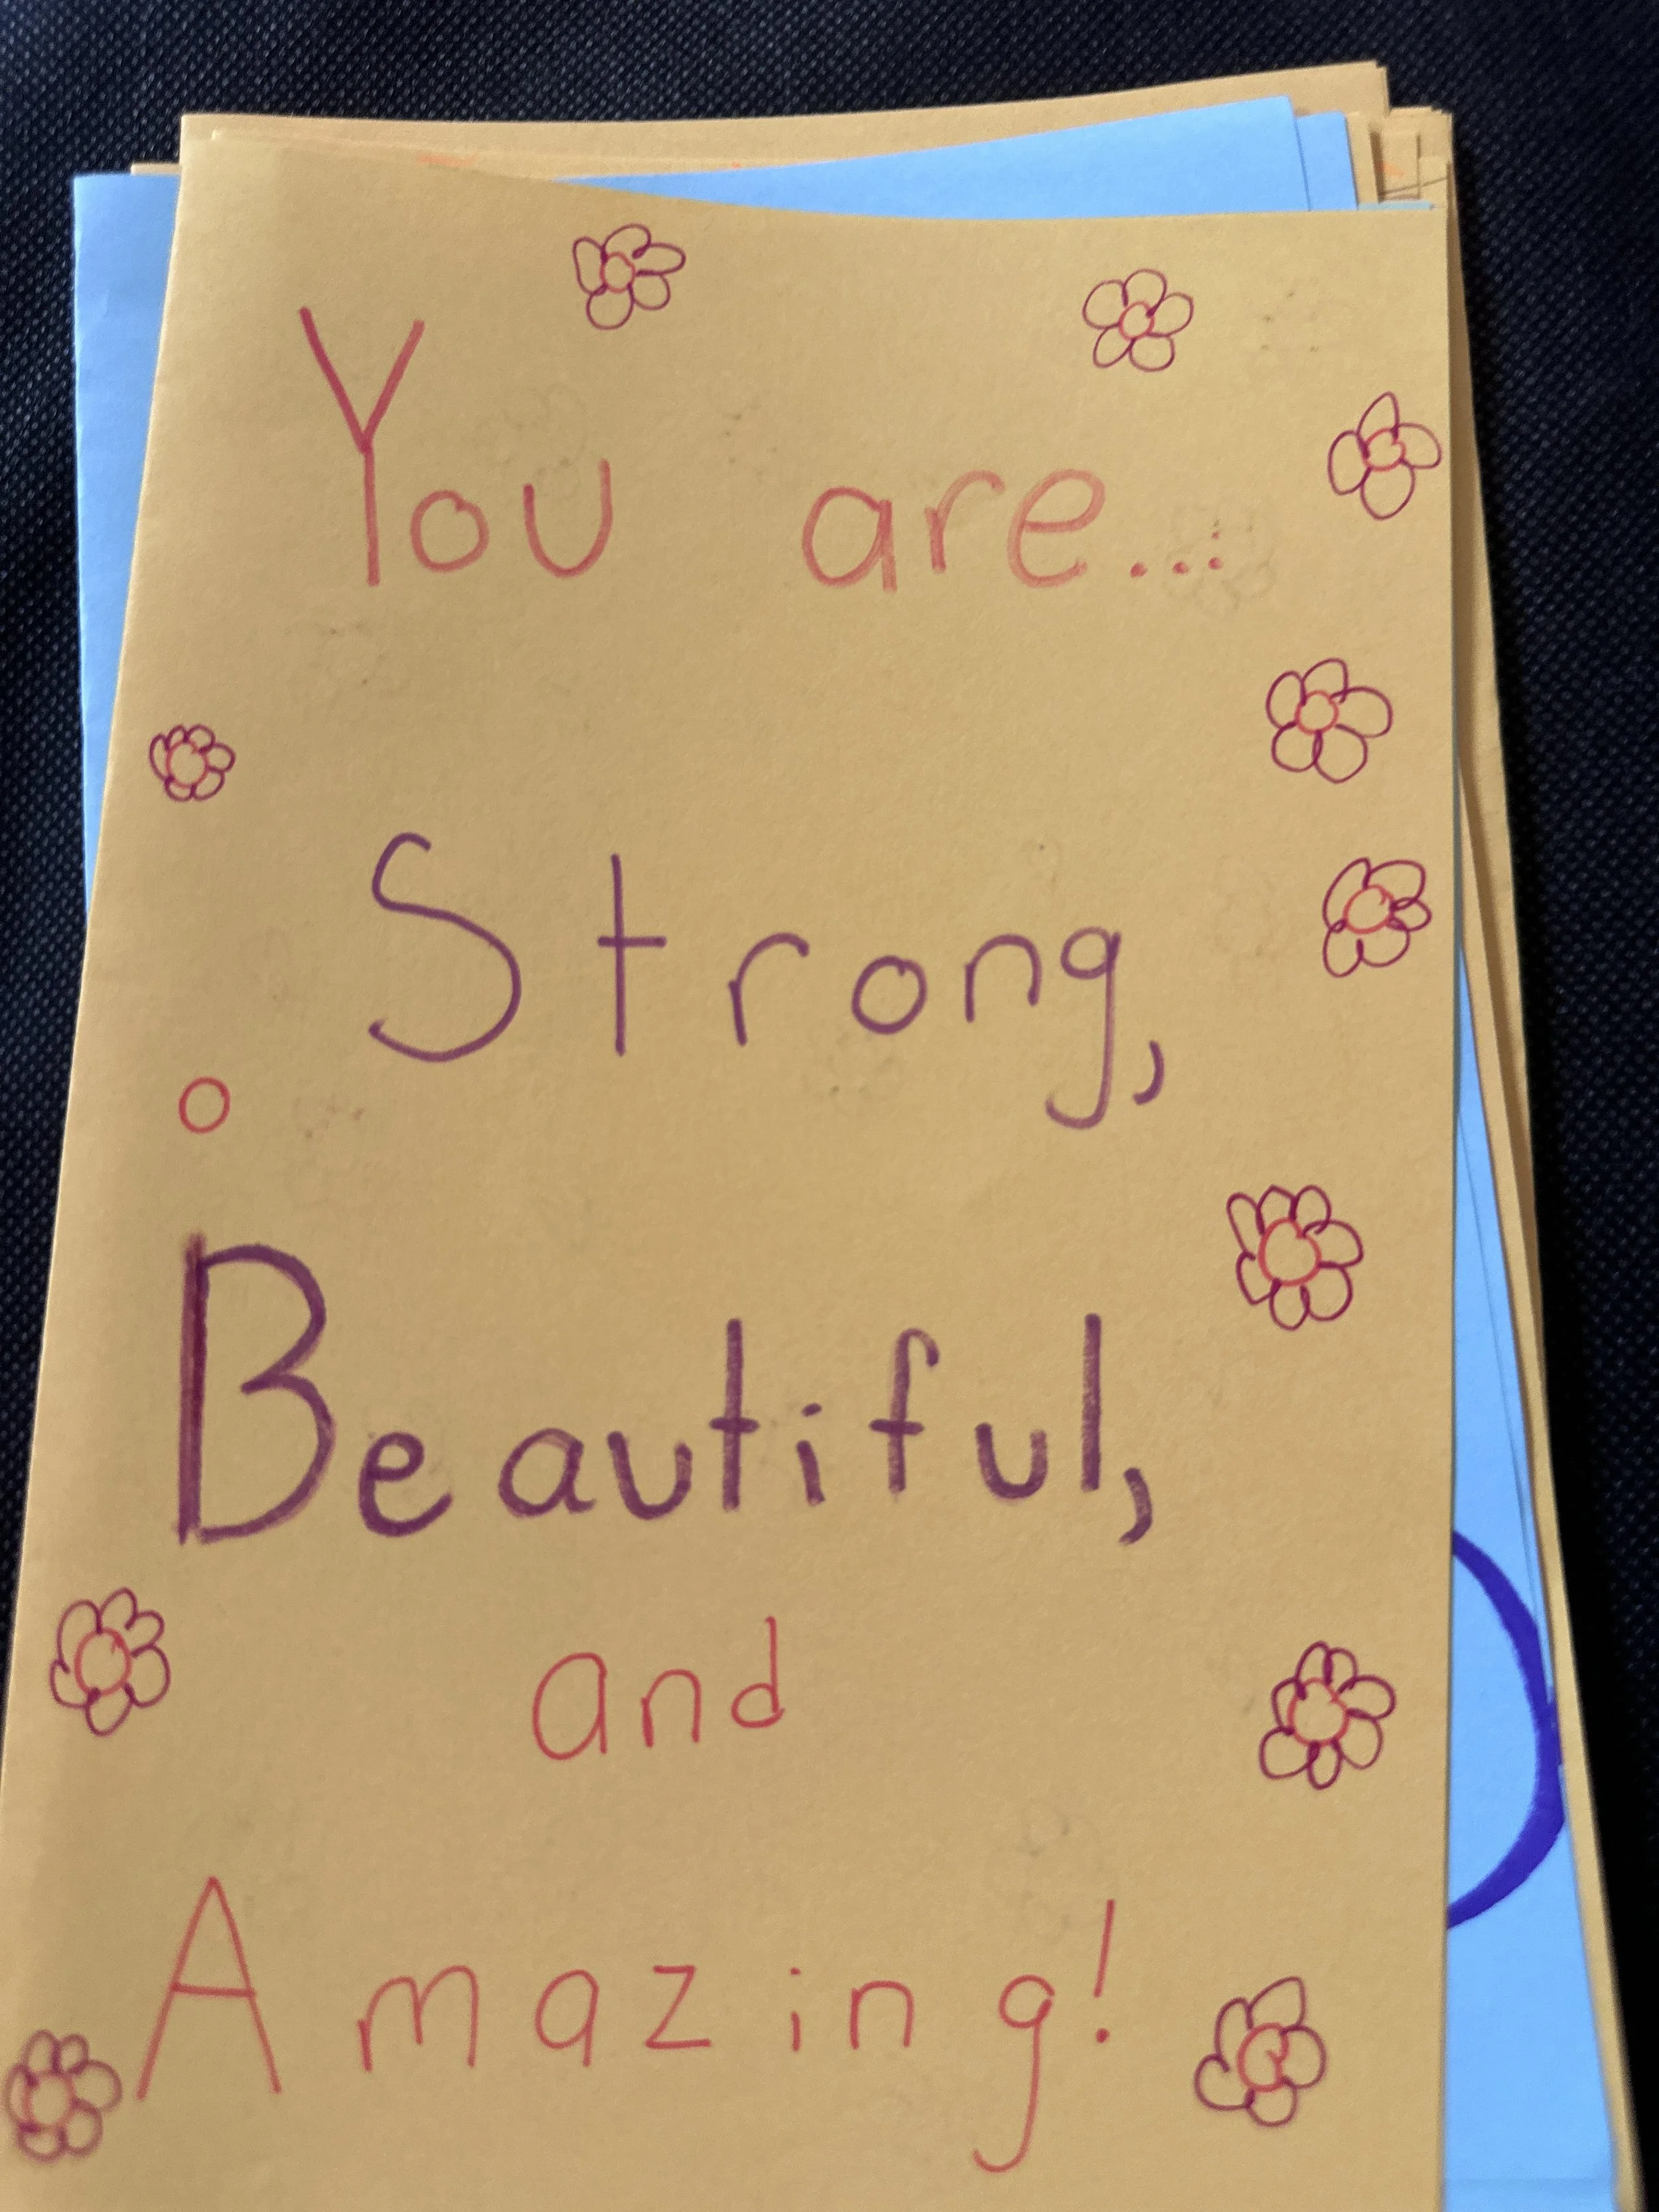 You are...
Strong,
Beautiful,
and
Amazing!